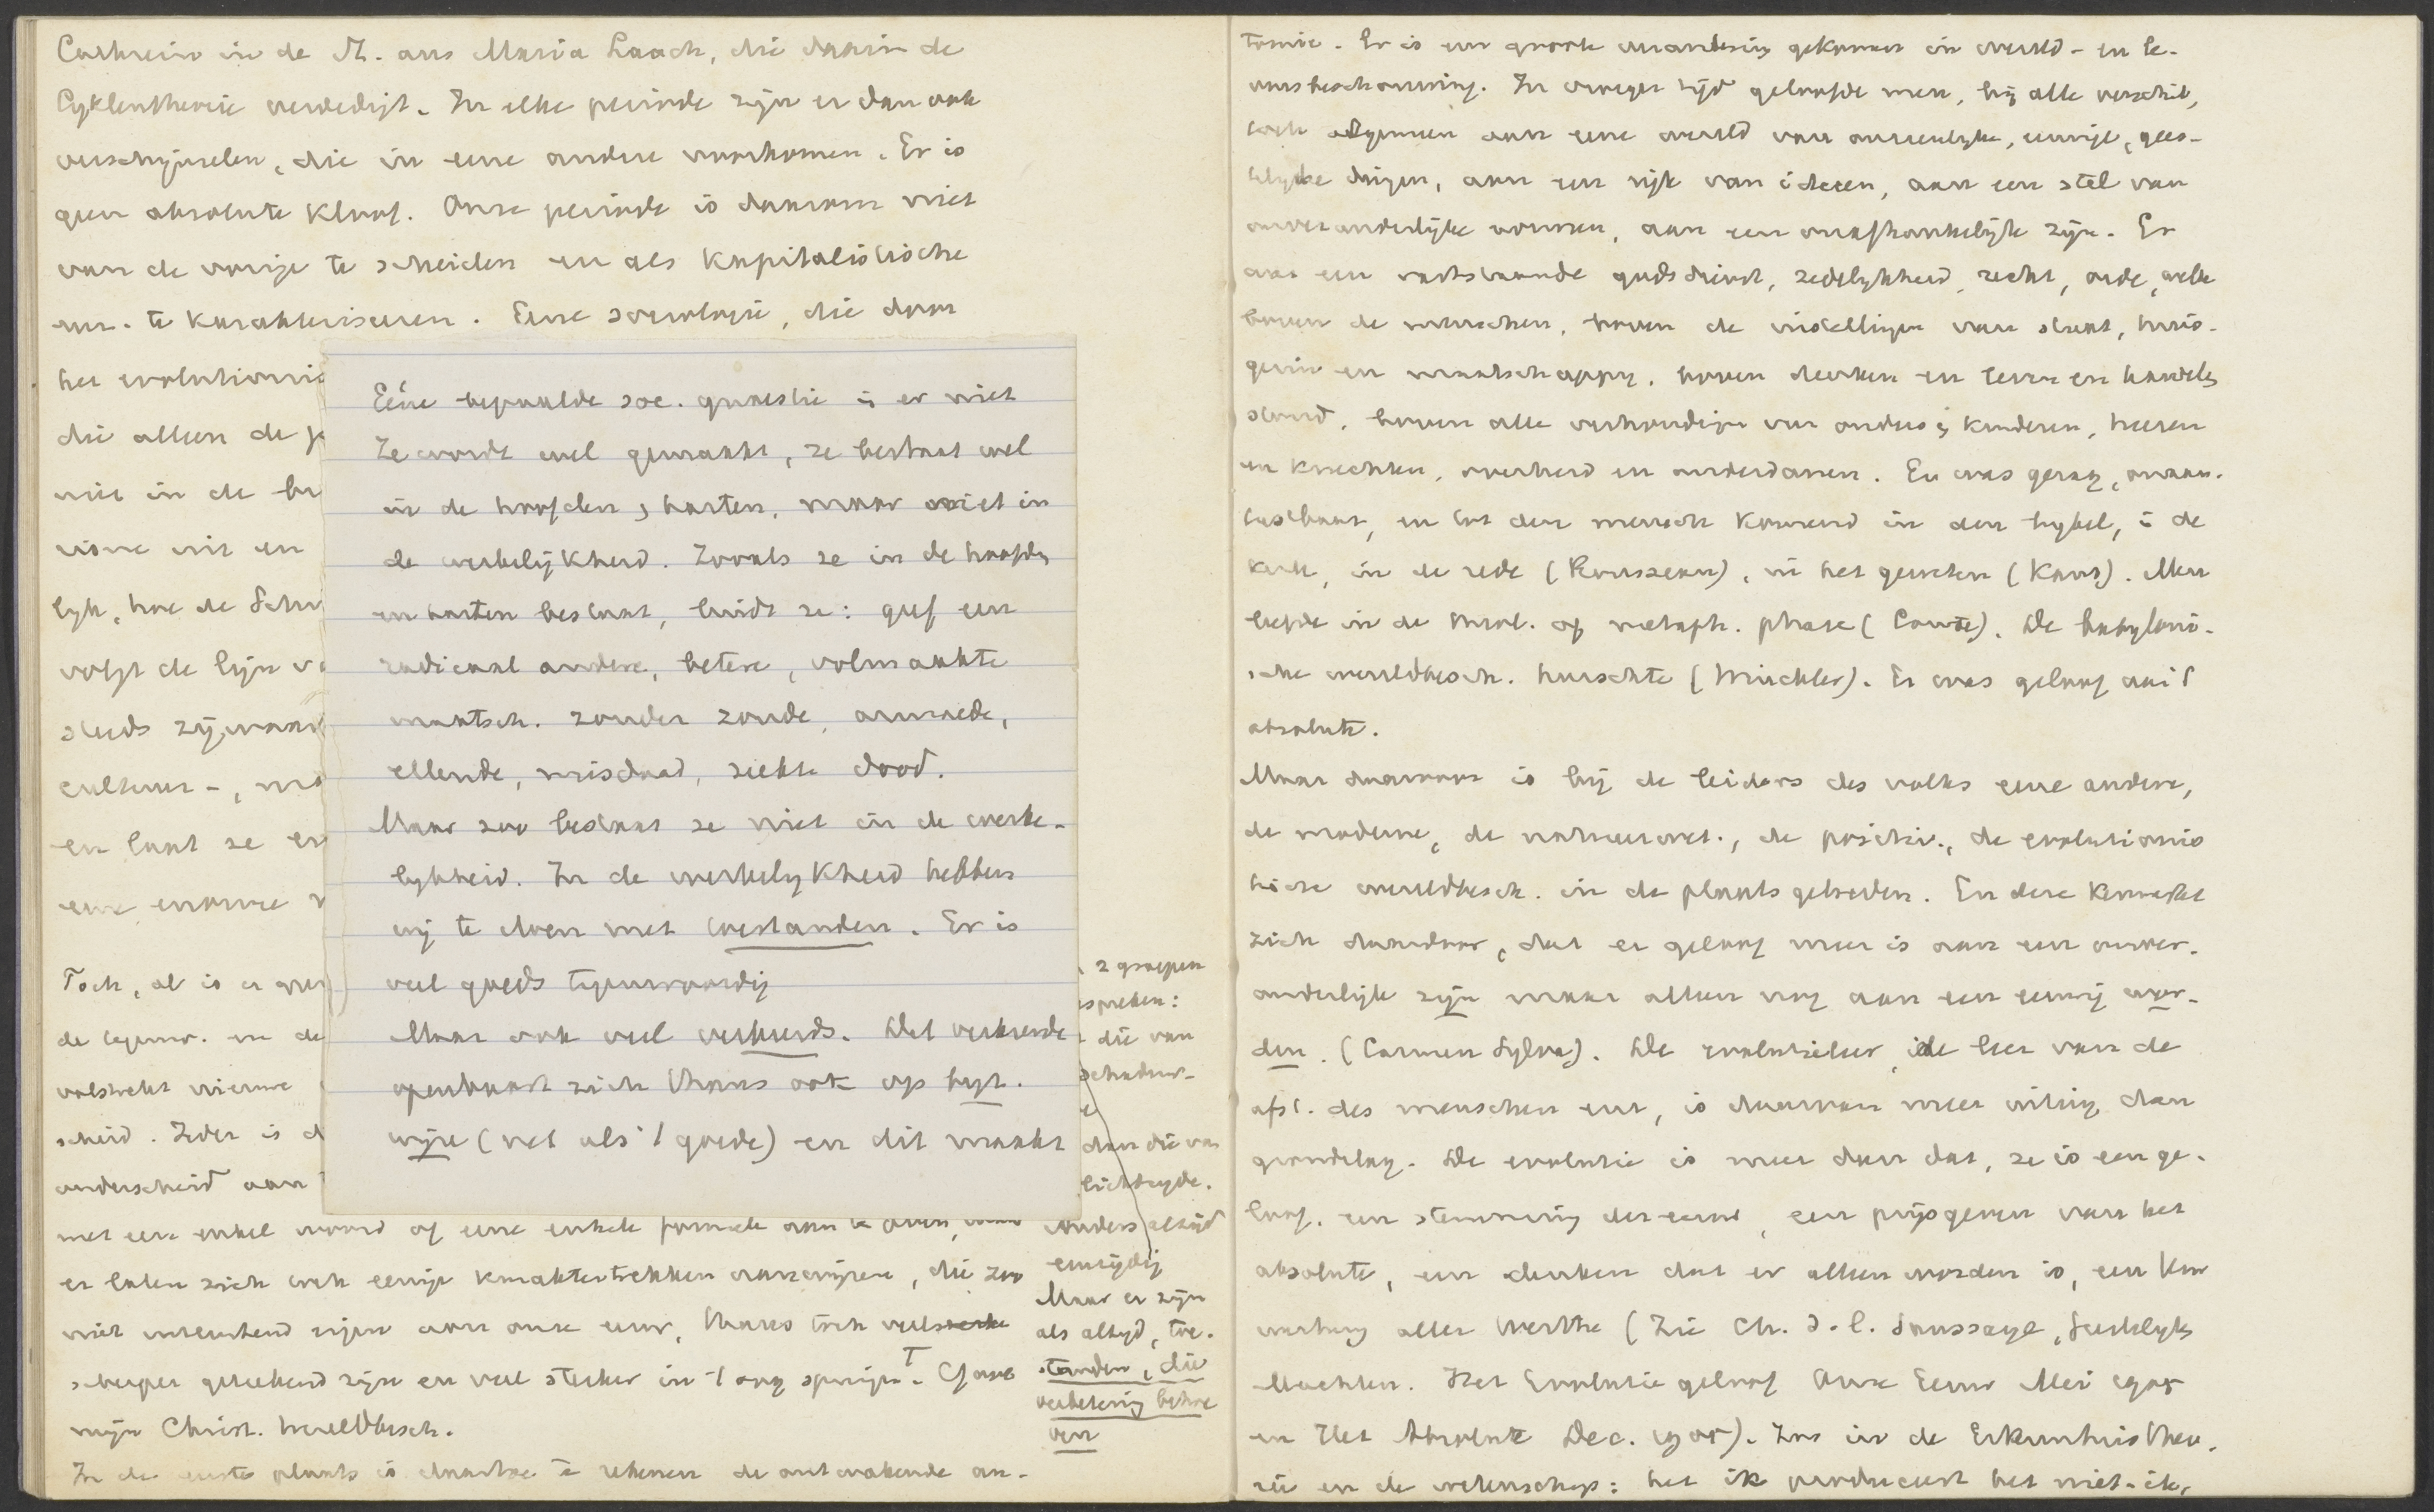 Cathrein in de St. aus Maria Laach, die daarin de
Cyklentheorie verdedigt. In elke periode zijn er dan ook
verschijnselen, die in eene andere voorkomen. Er is
geen absolute kloof. Onze periode is daarom niet
van de vorige te scheiden en als kapitalistische
enz. te karakteriseeren. Eene sociologie, die door
het evolutionis
die alleen de
nie in de
visme uit en
lijk, hoe de
volgt de lijn
steeds zijwaar
cultuur -,
en laat ze
eene enorme
Toch, al is er geen
de tegenw. en de
volstrekt nieuwe
scheid. Ieder is
onderscheid aan
met een enkel woord of eene enkele formule aan te
er laten zich ook eenige karaktertrekken aanwijzen, die zoo
niet uitsluitend eigen aan onze eeuw, thans toch veel sterke
scherper geteekend zijn en veel sterker in 't oog springen. Cf. onze
mijn Christ. Wereldbesch.
In de eerste plaats is daartoe te rekenen de ontwakende au-
Eéne bepaalde soc. quaestie is er niet
Ze wordt wel gemaakt, ze bestaat wel
in de hoofden & harten, maar niet in
de werkelijkheid. Zooals ze in de hoofden
en harten bestaat, luidt ze: geef een
radicaal andere, betere, volmaakte
maatsch. zonder zonde, armoede,
ellende, misdaad, ziekte dood.
Maar zoo bestaat ze niet in de werke-
lijkheid. In de werkelijkheid hebben
wij te doen met toestanden. Er is
veel goeds tegenwoordig
Maar ook veel verkeerds. Het verkeerde
openbaart zich thans ook op byz.
wijze (net als 't goede) en dit maakt
2 groepen
spreken:
die van
schaduw-
dan die van
lichtzyde.
anders altijd
eenzijdig
Maar er zijn
als altyd, toe-
standen, die
verbetering behoe
ven
tomie. Er is een groote verandering gekomen in wereld- en le-
vensbeschouwing. In vroeger tijd geloofde men, bij alle verschil,
toch algemeen aan eene wereld van onzienlijke, eeuwige, gees-
telijke dingen, aan een rijk van ideeen, aan een stel van
onveranderlijke vormen, aan een onafhankelijk zijn. Er
was een vaststaande godsdienst, zedelijkheid, recht, orde, welke
boven de menschen, boven de instellingen van staat, huis-
gezin en maatschappij, boven denken en leven en handelen
stond, boven alle verhoudingen van ouders & kinderen, heeren
en knechten, overheid en onderdanen. Er was gezag, onaan-
tastbaar, en tot den mensch komend in den bybel, in de
kerk, in de rede (Rousseau), in het geweten (Kant). Men
leefde in de theol. of metaph. phase (Comte). De babyloni-
sche wereldbesch. heerschte (Winckler). Er was geloof aan 't
absolute.
Maar daarvoor is bij de leiders des volks eene andere,
de moderne, de natuurwet., de positiv., de evolutionis
tische wereldbesch. in de plaats getreden. En deze kenmerkt
zich daardoor, dat er geloof meer is aan een onver-
anderlijk zijn maar alleen nog aan een eeuwig wor-
den. (Carmen Sylva). De evolutieleer, de leer van de
afst. des menschen enz, is daarvan meer uiting dan
grondslag. De evolutie is meer dan dat, ze is een ge-
loof, een stemming der eeuw, een prijsgeven van het
absolute, een denken dat er alleen worden is, een Um
wertung aller Werthe (Zie Ch. d. l. Saussaye, Geestelijke
Machten. Het Evolutie geloof Onze Eeuw Mei 1905
en Het Absolute Dec. 1905). Zoo in de Erkenntnistheo-
rie en de wetenschap: het ik produceert het niet-ik,